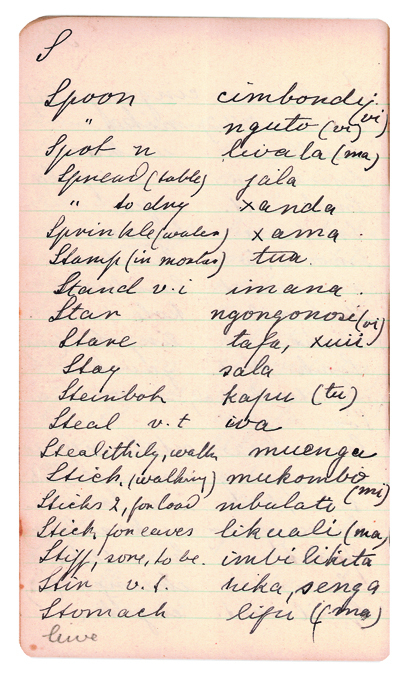 S
Spoon cimbondi (vi)
" nguto (vi)
Spot n livala (ma)
Spread (table) jala
" to dry xanda
Sprinkle (water) xama
Stamp (in mortar) tua
Stand v.i imana
Star ngongonosi (vi)
Starve tafa, xuii
Stay sala
Steinbok kapu (tu)
Steal v.t iva
Stealithily, walk muenga
Stick (walking) mukombo (mi)
Sticks 2, for load mbulati
Stick, for eaves likuali (ma)
Stiff, sore, to be. imbi likita
Stir v.t. senga
Stomach lifu (ma)